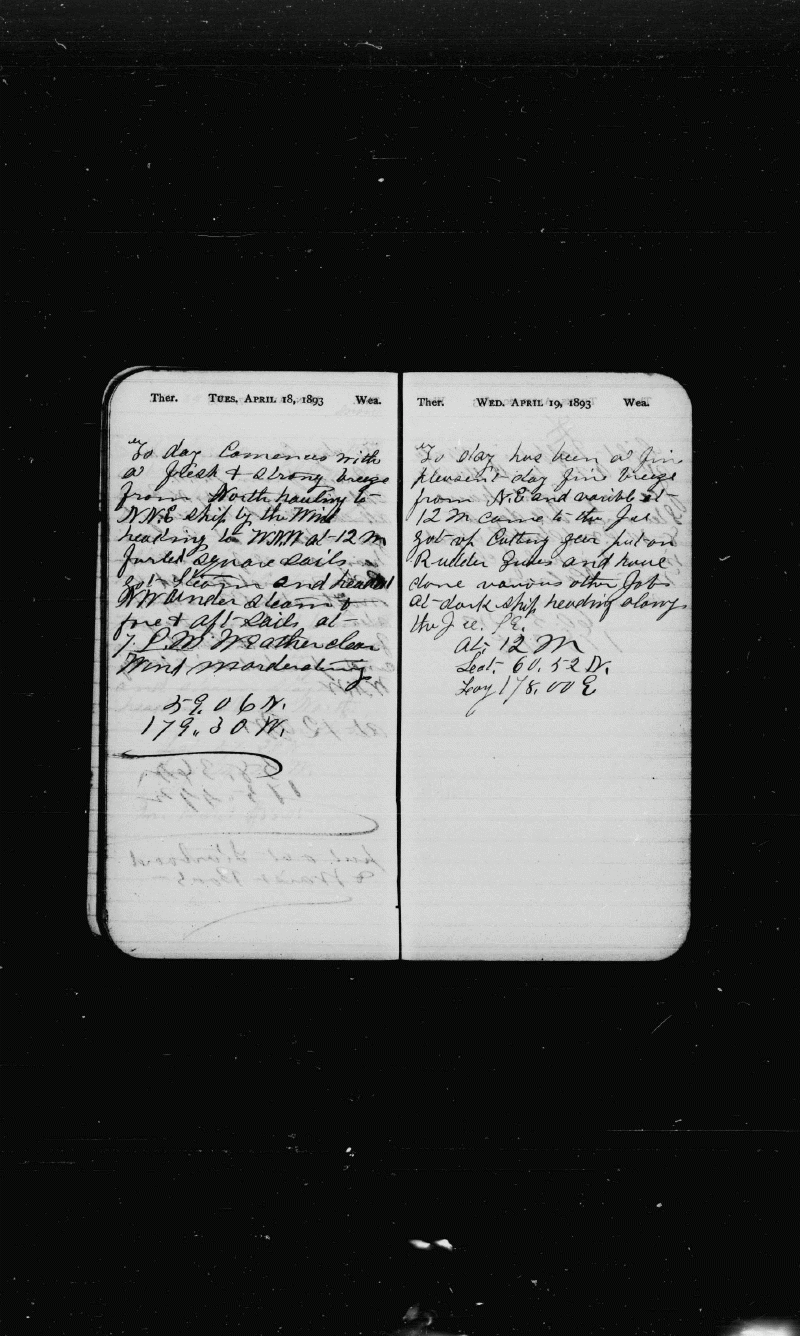 Ther. TUES, APRIL 18, 1893 Wea.
To day Comences with
a fresh & strong breeze
from North hauling to
NNE ship by the Wind
heading to WNW at 12 M
furled square sails
got steam and headed
NW under steam &
fore & aft sails at
7 P.M. Weather clear
Wind morderating
59.06 N.
179.30 W.
Ther. WED. APRIL 19, 1893 Wea.
To day has been a fine
pleasent day fine breeze
from N.E and varible at
12 M came to the Ice
got up Cutting gear put on
Rudder and have
done various other Jobs
at dark ship heading along
the Ice. SE.
at 12 M
Lat. 60.52 N.
Long 178.00 E